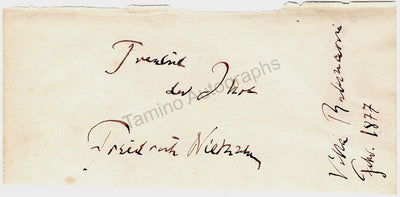 Treulich
der Ihre
Friedrich Nietzsche
Villa Rubinacci
Febr. 1877
Tamino Autographs